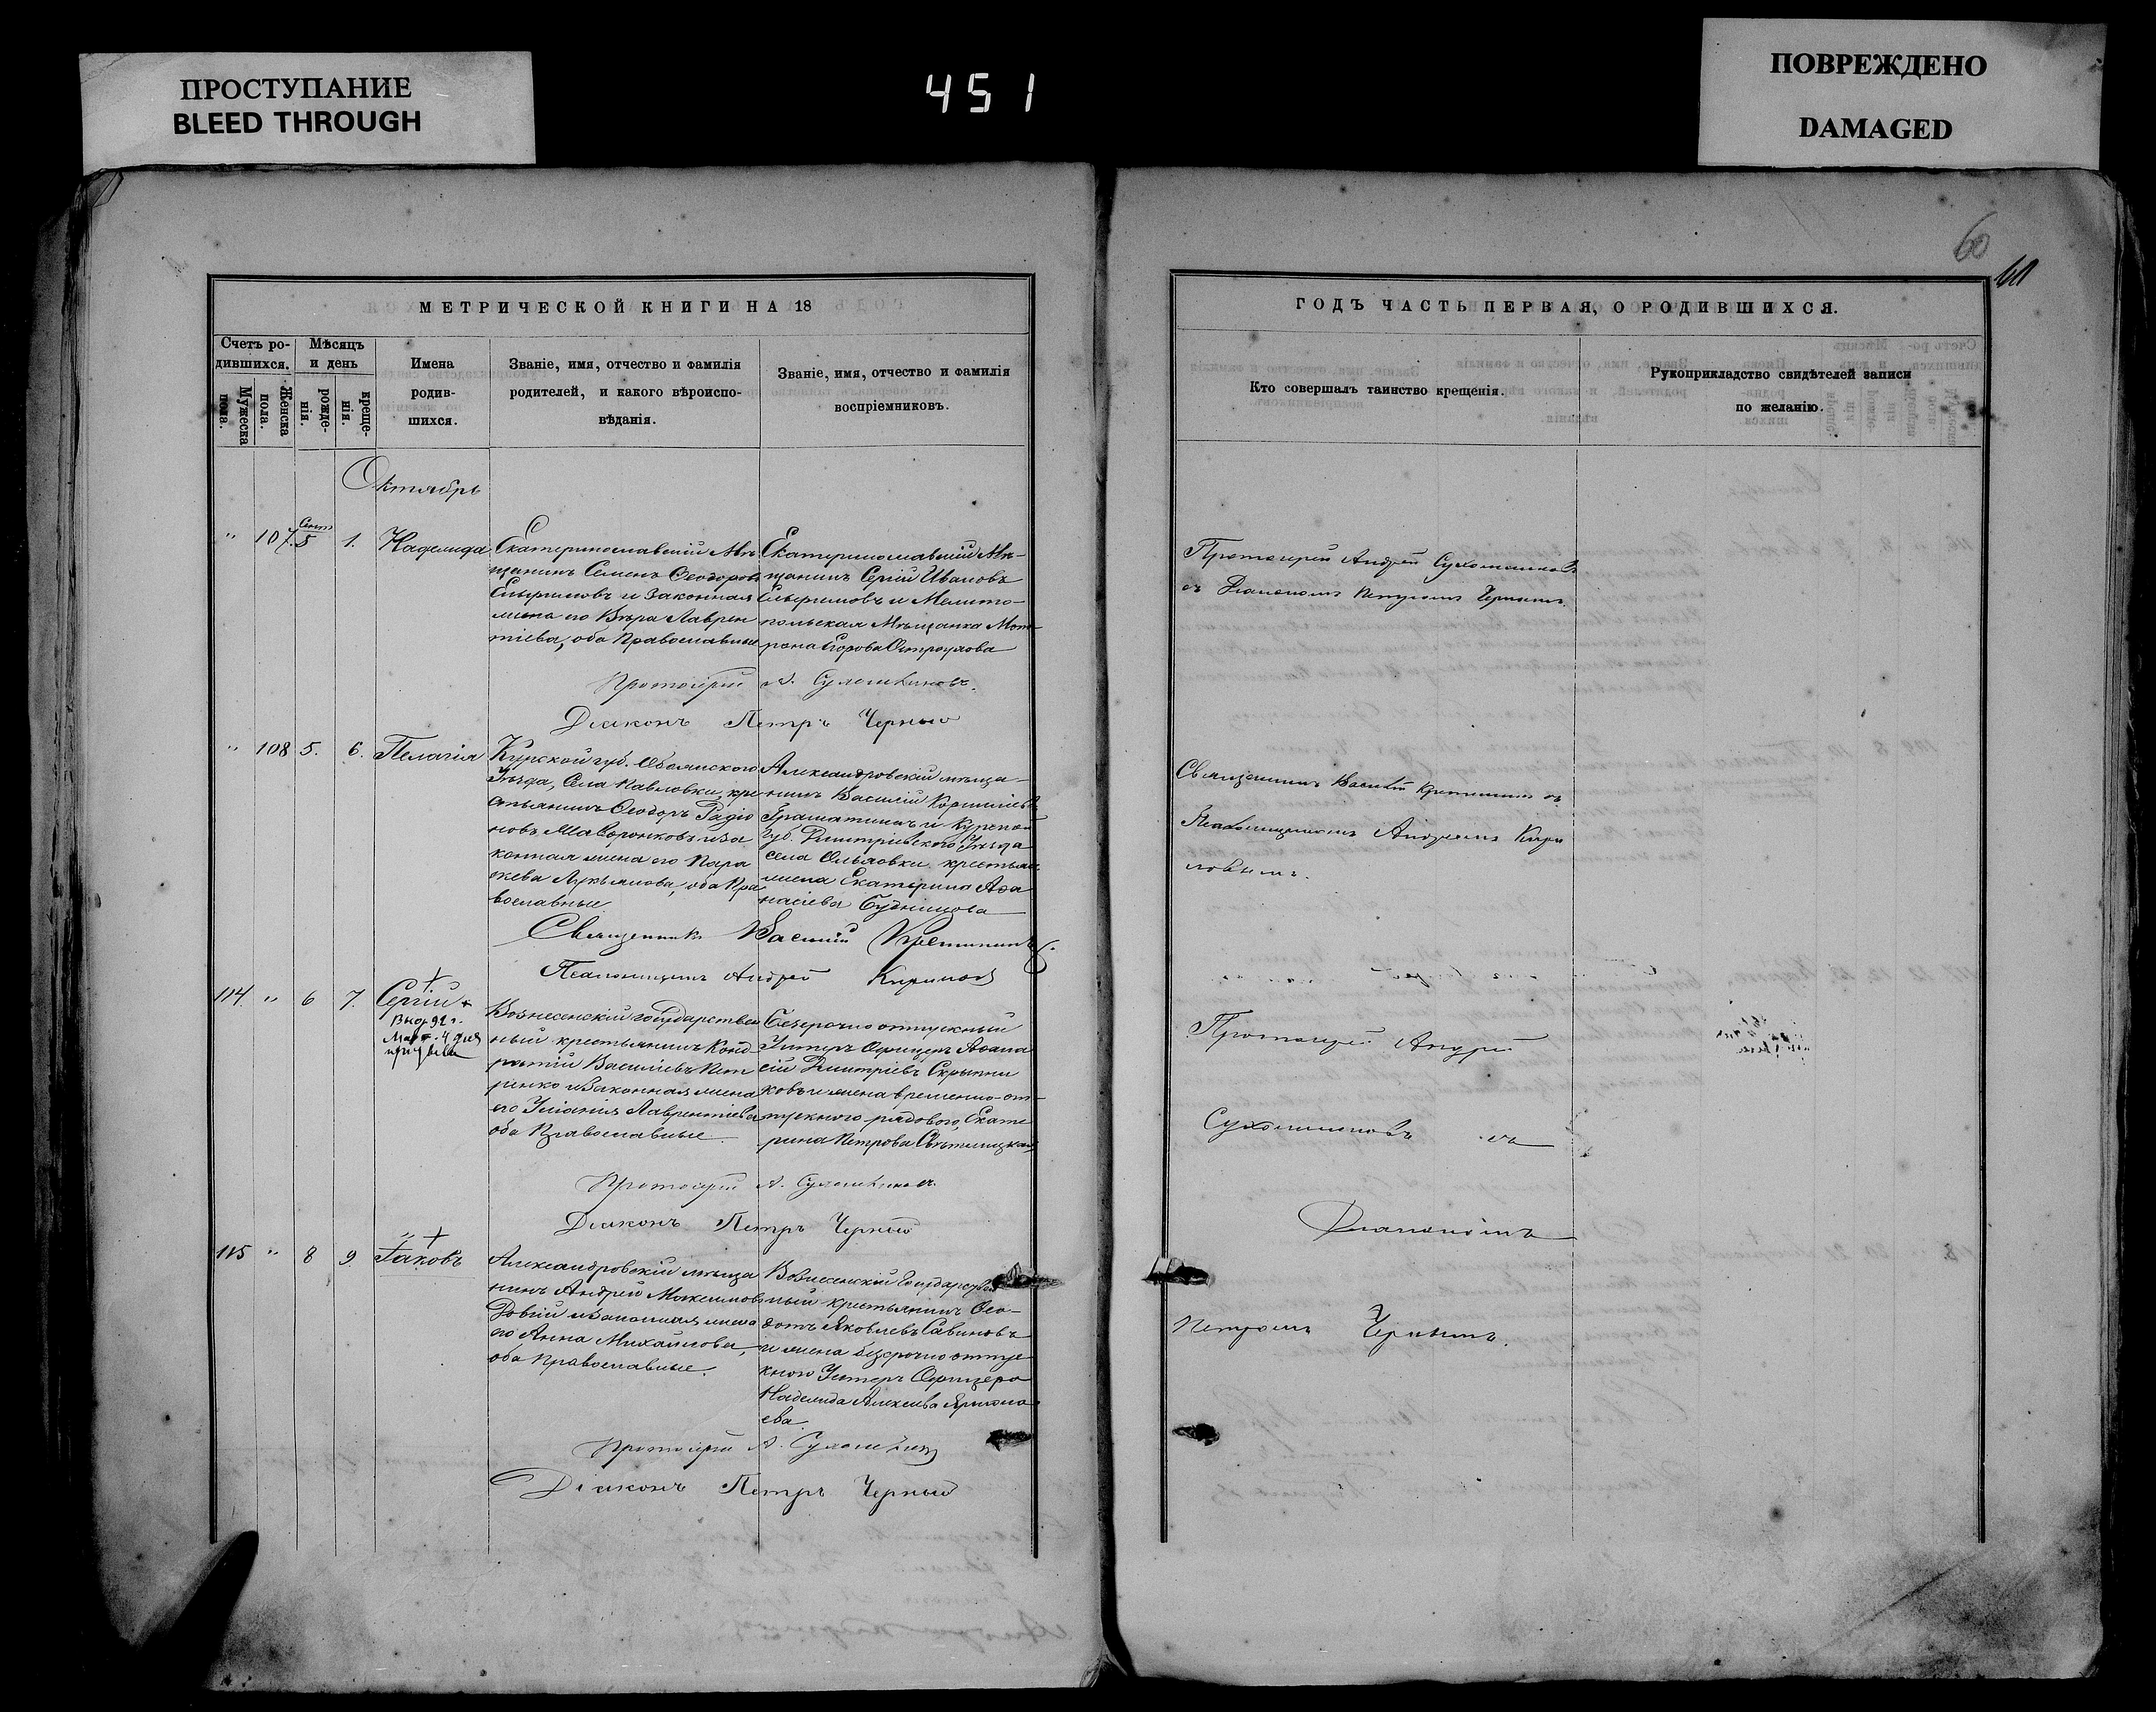 ПРОСТУПАНИЕ
BLEED THROUGH
451
ПОВРЕЖДЕНО
DAMAGED
60
МЕТРИЧЕСКОЙ КНИГИ НА 18
Счетъ ро-
дившихся.
Мужеска
пола.
Женска
пола.
Мѣсяцъ
и день
рожде-
нія.
креще-
нія.
Имена
родив-
шихся.
Званіе, имя, отчество и фамилія
родителей, и какого вѣроиспо-
вѣданія.
Званіе, имя, отчество и фамилія
воспріемниковъ.
Октябрь
" 107. Сент 5 1. Надежда
Екатеринославскій Мѣ-
щанинъ Семенъ Ѳеодоровъ
и Законная
жена его Вѣра Лаврен
тіева, оба Православные
Екатеринославскій Мѣ-
щанинъ Сергій Ивановъ
и Мелито-
польская Мѣщанка Мат
рона Егорова
Протоіерей А. Сухомлиновъ.
Діаконъ Петръ Черный
" 108 5. 6. Пелагія
Курской губ. Обоянского
Уѣзда, Села Павловки, кре
стьянинъ Ѳеодоръ Радіо
новъ и За
конная жена его Пара
скева Лукьянова, оба Пра
вославные
Александровскій мѣща-
нинъ Василій
и Курской
Губ. Дмитріевского Уѣзда
села крестьян
Екатерина Аѳа
насіева
Священникъ Василій Крестининъ
Псаломщикъ Андрей Кириловъ
114. " 6 7. Сергій +
4 дня
Вознесенскій государствен
ный крестьянинъ Конд-
ратій Василіевъ Пет
ренко и Законная жена
его Уліанія Лаврентіева
оба Православные.
Безсрочно отпускный
Унтеръ Офицеръ Аѳана
сій Дмитріевъ Скрыпни
ковъ и жена временно-от-
пускного рядового, Екате
рина Петрова
Протоіерей А. Сухомлиновъ.
Діаконъ Петръ Черный
115 " 8 9. Іаковъ
Александровскій мѣща
нинъ Андрей Максимовъ
Довгій и Законная жена
его Анна Михайлова,
оба Православные.
Вознесенскій Государствен
ный крестьянинъ Ѳео-
дотъ Яковлевъ Савиновъ
и жена безсрочно отпу
кного Унтеръ Офицера
Надежда Алексѣева
ева
Протоіерей А. Сухомлиновъ
Діаконъ Петръ Черный
ГОДЪ ЧАСТЬ ПЕРВАЯ, О РОДИВШИХСЯ.
Кто совершалъ таинство крещенія.
Рукоприкладство свидѣтелей записи
по желанію.
Протоіерей Андрей Сухомлиновъ
съ Діакономъ Петромъ Чернымъ.
Священникъ Василій Крестининъ съ
Псаломщикомъ Андреемъ Кири
ловымъ.
Протоіерей Андрей
Сухомлиновъ съ
Діакономъ
Петромъ Чернымъ.